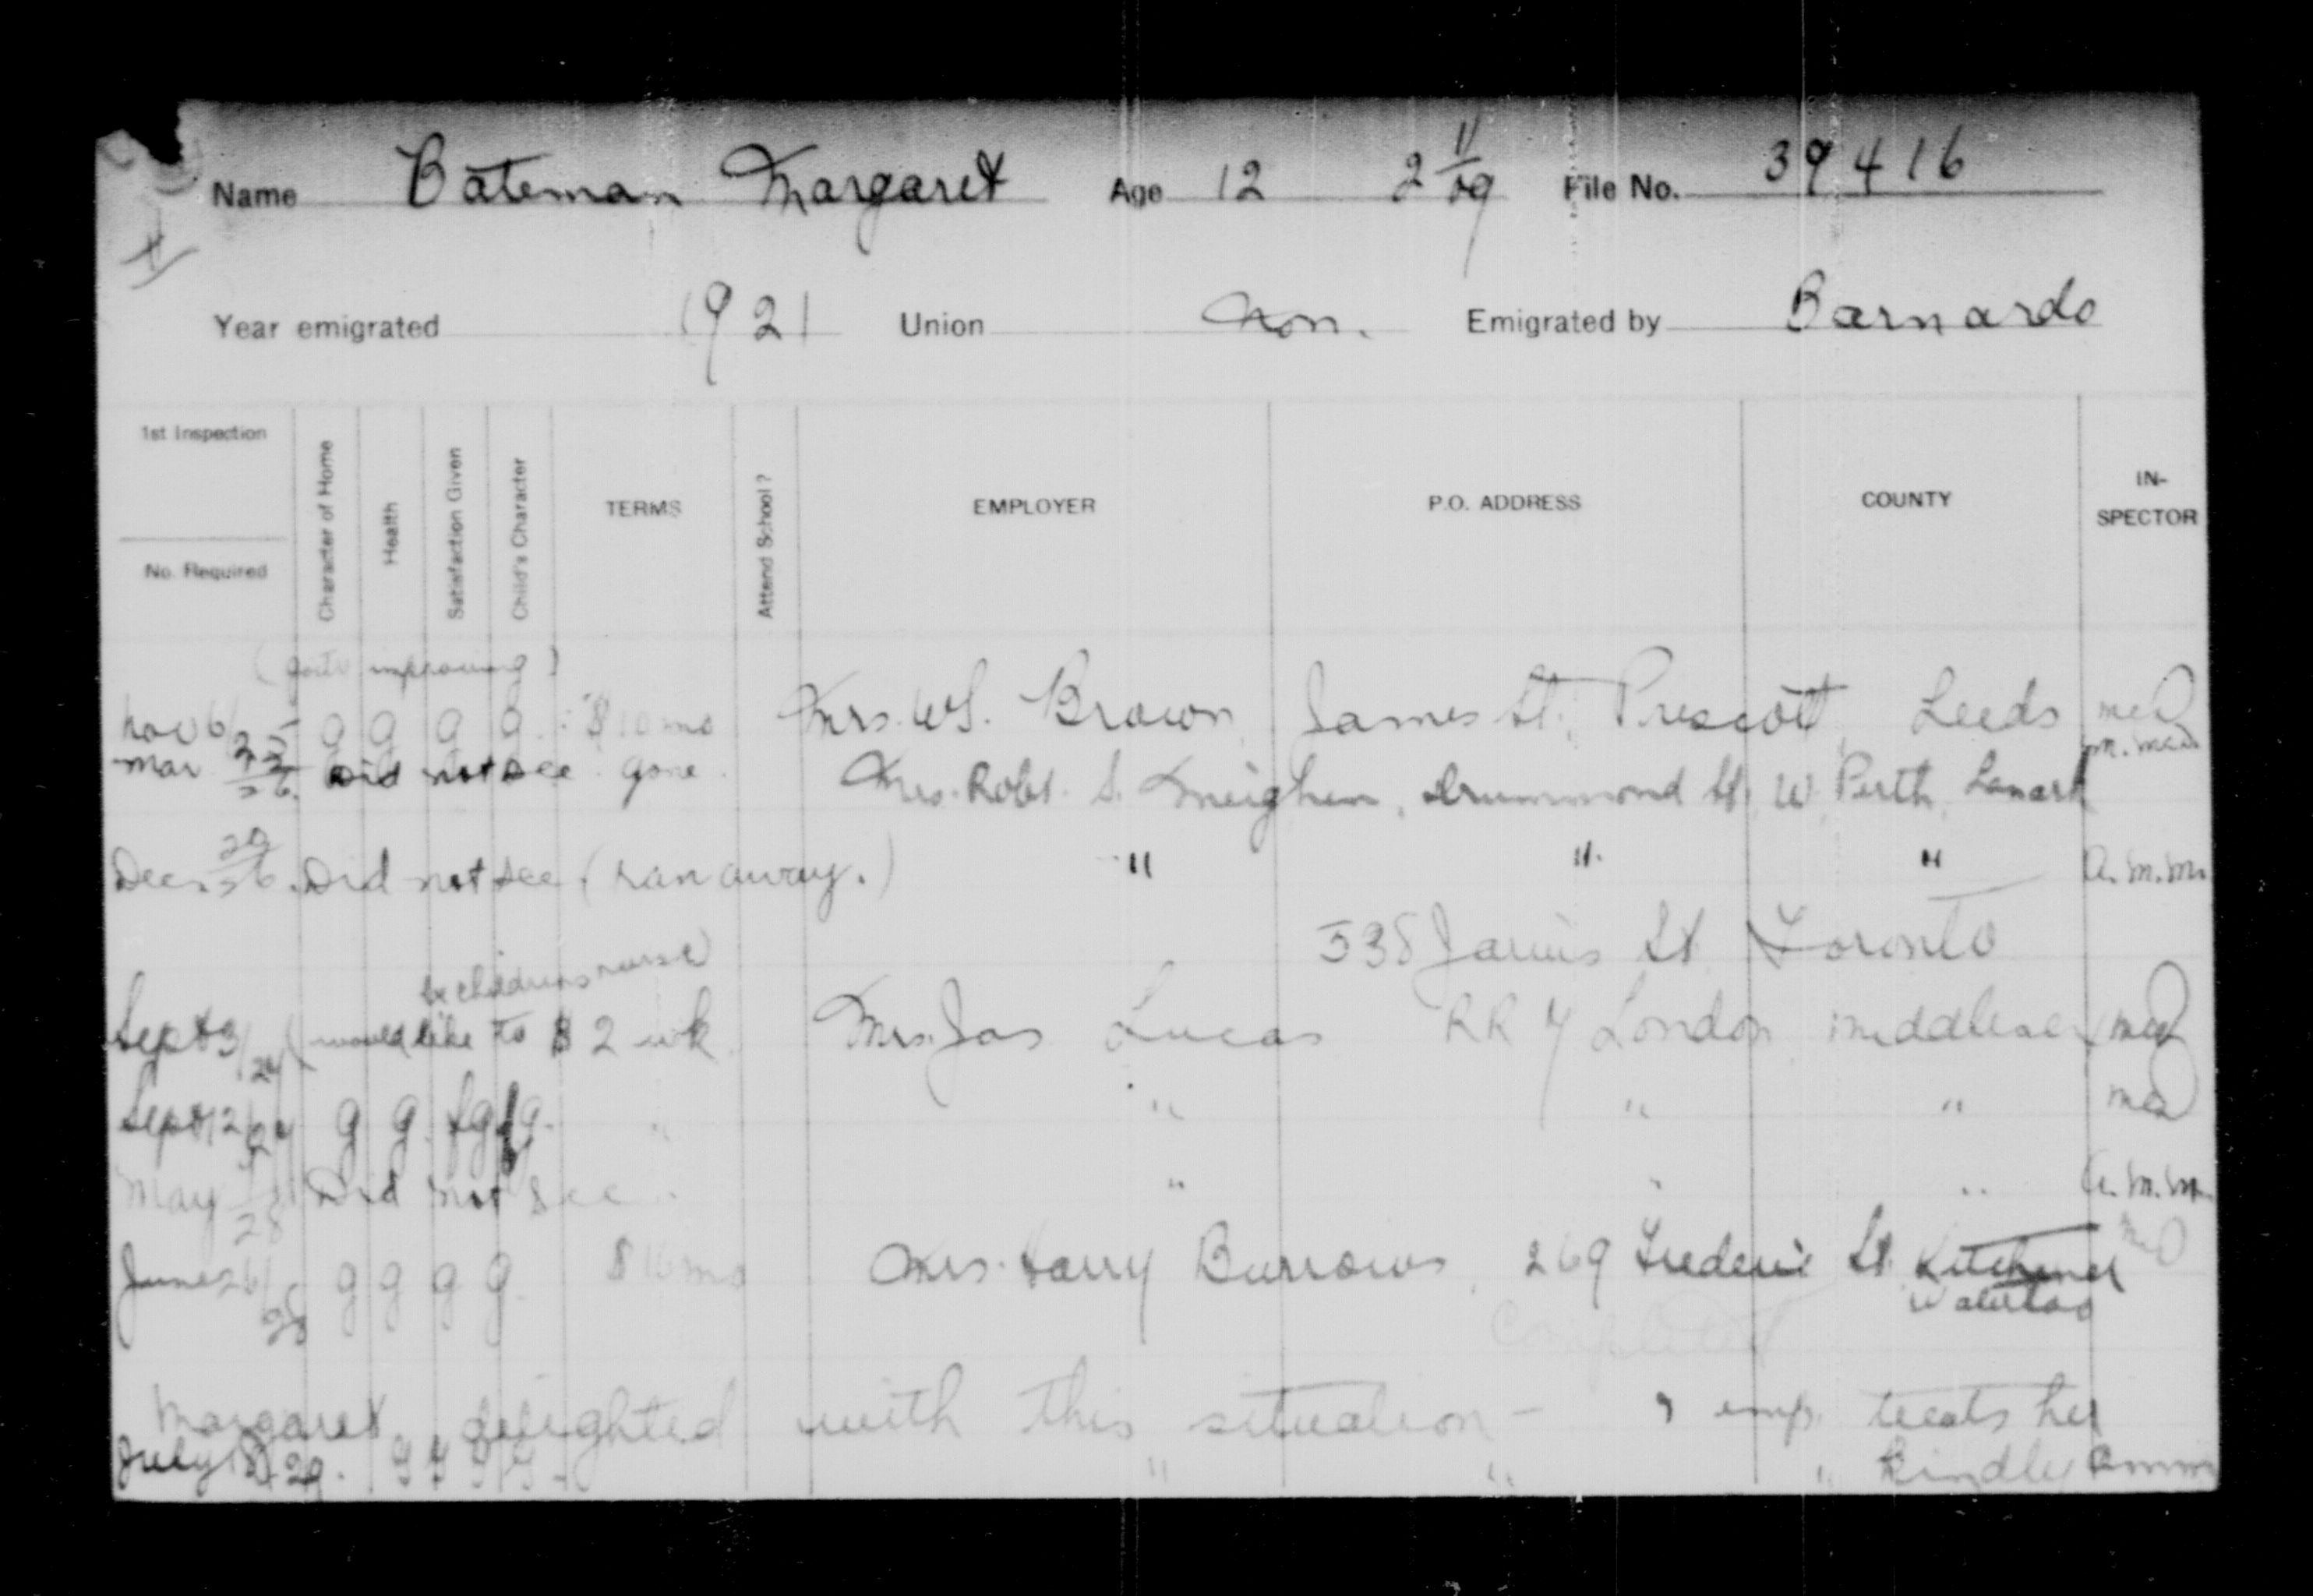 Name Bateman Margaret Age 12 2 11/09 File No. 39416
Year emigrated 1921 Union Non. Emigrated by Barnardo
1st Inspection
No. Required
Character of Home
Health
Satisfaction Given
Child's Character
TERMS
Attend School?
EMPLOYER
P.O. ADDRESS
COUNTY
IN-
SPECTOR
improving )
Nov 6/25 g g g g. $10 mo Mrs. W.S. Brown, James St. Prescott, Leeds
Mar 26. Did not see. gone. Mrs. Robt. S. Meighen, Drummond St. W. Perth, Lanark
Dec. 29/26. Did not see. (ran away.) " " " A.M.M.
538 Jarvis St Toronto
be childrens nurse)
Sept (would like to $2 wk. Mrs. Jas Lucas RR 4 London Middlesex
Sept g g. fg fg. " " " "
May 28 Did not see. " " " A.M.M.
June 26/28 g g g g. $16 mo Mrs. Harry Burrows, 269 Frederic St. Kitchener
Waterloo
Completed
Margaret delighted with this situation - emp. treats her
July 29. g g g g. " " " kindly AMM